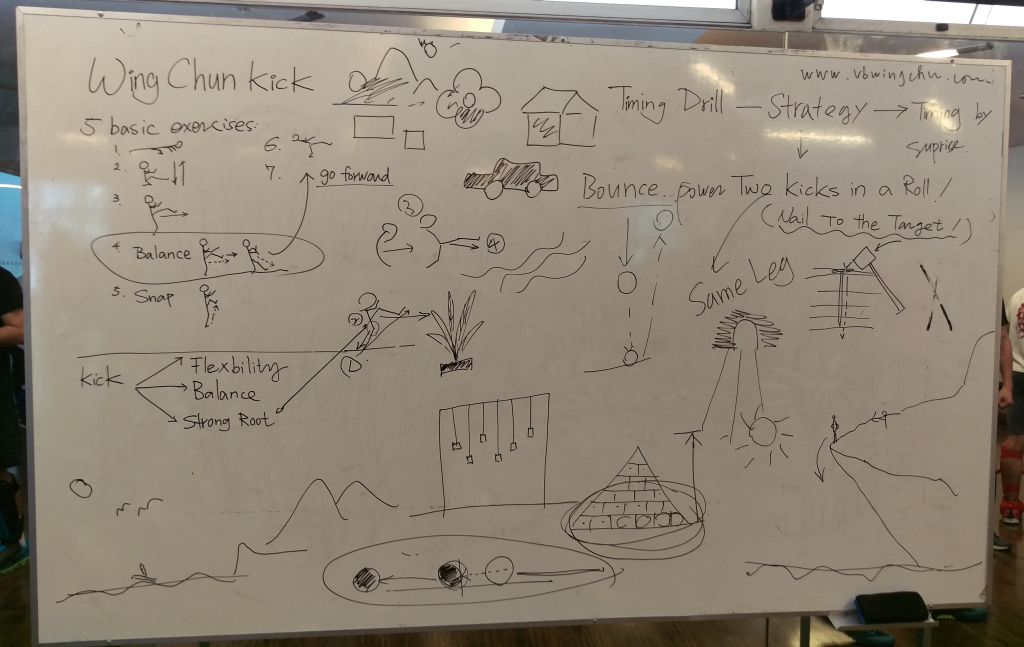 Wing Chun Kick
5 basic exercises:
1.
2.
3.
4. Balance
5. Snap
6.
7. go forward
Kick
Flexbility
Balance
Strong Root
1
2
3
4
www.vbwingchun.com
Timing Drill — Strategy → Timing by
suprise.
Bounce power Two Kicks in a Roll!
(Nail To the Target!)
Same Leg